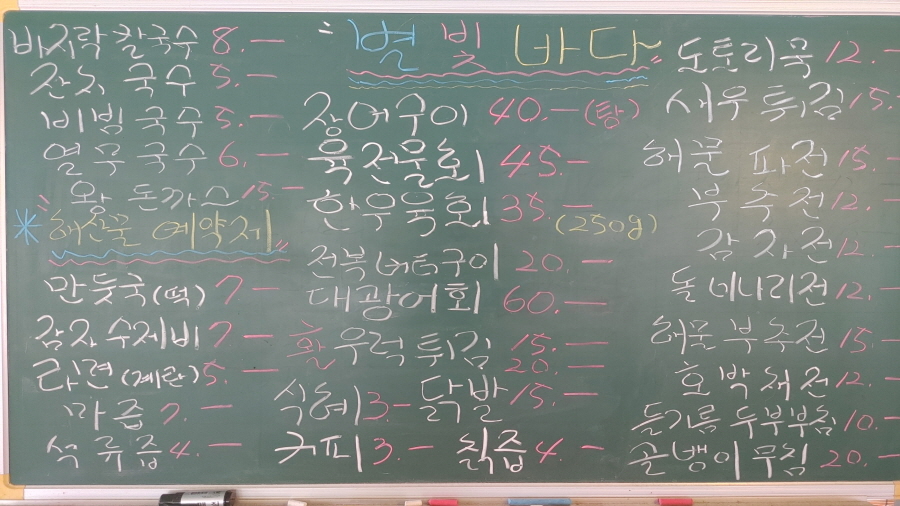 " 별 빛 바다 "
바지락 칼국수 8.-
잔치 국수 5.-
비빔 국수 5.-
열무 국수 6.-
" 왕 돈까스 15.-
* 해산물 예약제 "
만둣국(떡) 7-
감자 수제비 7-
라면(계란) 5.-
마즙 7.-
석류즙 4.-
장어구이 40.-(탕)
육전물회 45.-
한우육회 35.-(250g)
전복버터구이 20.-
대광어회 60.-
활우럭튀김 15.-
20.-
식혜 3.- 닭발 15.-
커피 3.- 칡즙 4.-
도토리묵 12.-
새우튀김 15.-
해물파전 15.-
부추전 12.-
감자전 12.-
돌미나리전 12.-
해물부추전 15.-
호박채전 12.-
들기름 두부부침 10.-
골뱅이무침 20.-